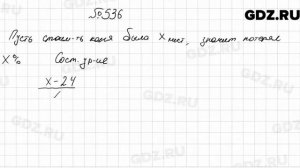 №536
GDZ.RU
Пусть стоим-ть коня была x пист, значит потерял
x% Сост. ур-ие
x-24
GDZ.RU